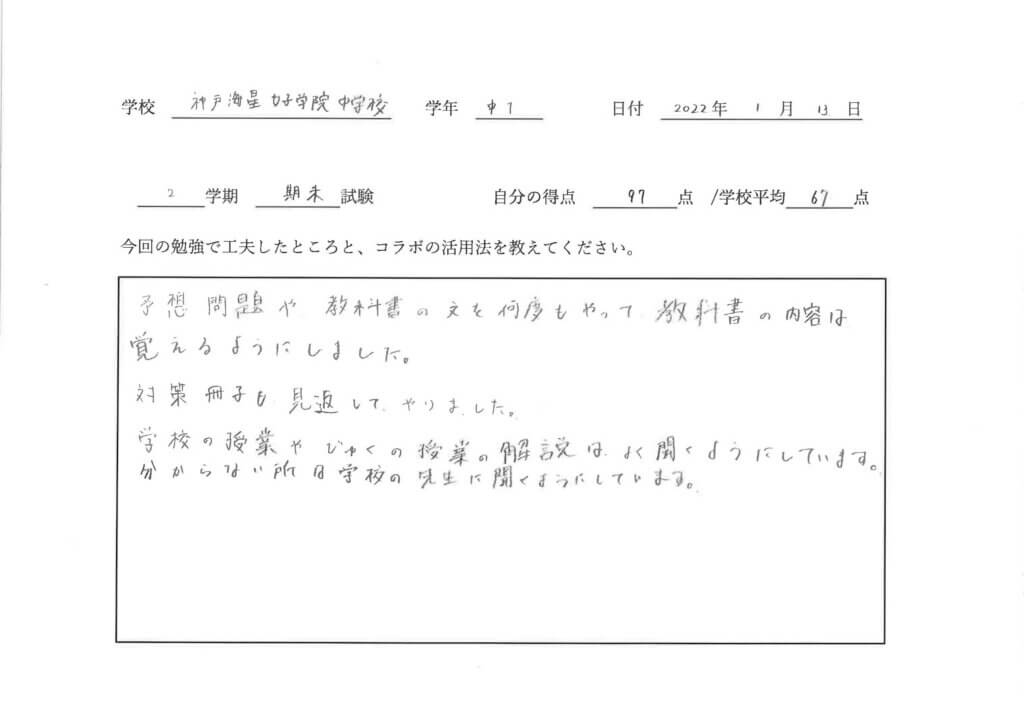 学校 神戸海星女子学院中学校 学年 中1 日付 2022年 1月 13日
2 学期 期末 試験 自分の得点 97 点 /学校平均 67 点
今回の勉強で工夫したところと、コラボの活用法を教えてください。
予想問題や教科書の文を何度もやって教科書の内容は
覚えるようにしました。
対策冊子も見返して、やりました。
学校の授業やじゅくの授業の解説は、よく聞くようにしています。
分からない所は学校の先生に聞くようにしています。